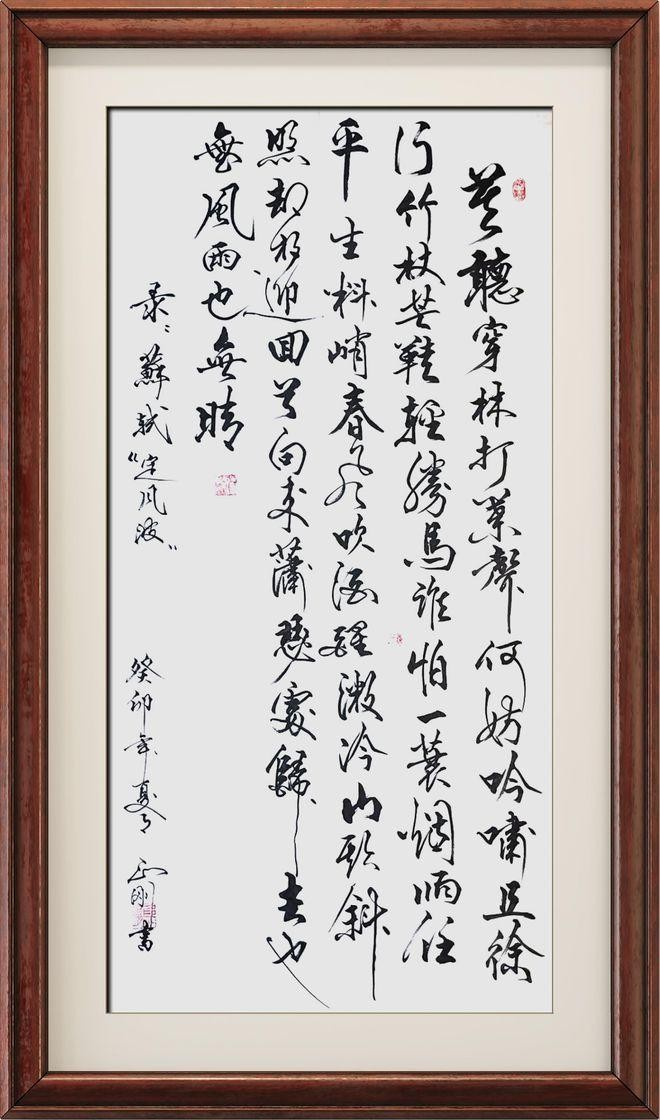 莫聽穿林打葉聲何妨吟嘯且徐
行竹杖芒鞋輕勝馬誰怕一蓑烟雨任
平生料峭春风吹酒醒微冷山頭斜
照却相迎回首向来蕭瑟處歸去也
無風雨也無晴
录：蘇軾“定风波”
癸卯年夏月 正刚書